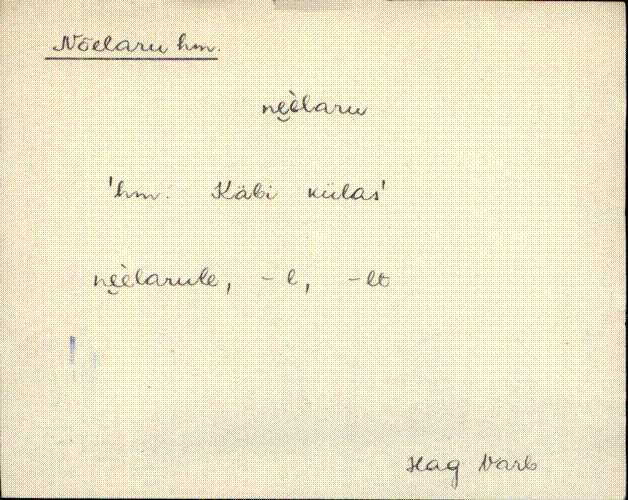 Nõelaru hm.
ne̮èlaru
'hm. Käbi külas'
ne̮èlarule, -l, -lt
Hag Varb